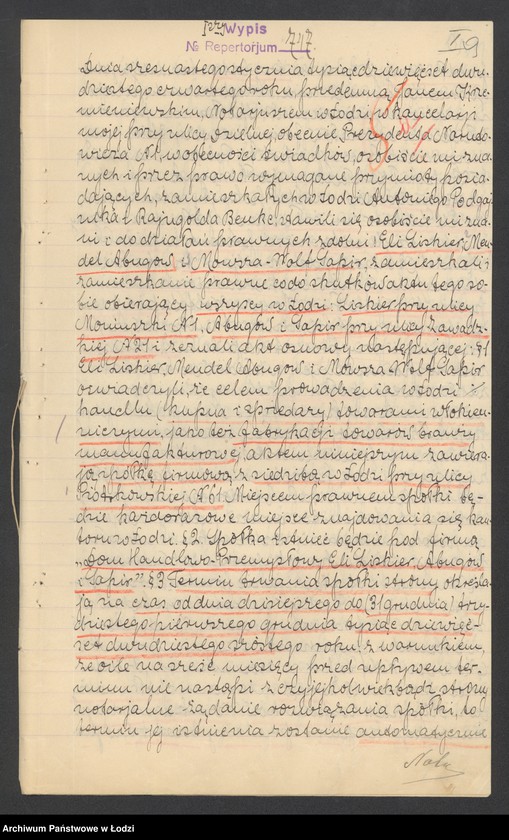 Wypis
№ Repertorjum 747.
I 9
Dnia szesnastego stycznia tysiąc dziewięćset dwu-
dziestego czwartego roku, przedemną, Janem Krze-
mieniewskim, Notarjuszem w Łodzi, w kancelarji
mojej przy ulicy Dzielnej, obecnie Prezydenta Naruto-
wicza № , w obecności świadków, osobiście mi zna-
nych i przez prawo wymagane przymioty posia-
dających, zamieszkałych w Łodzi Antoniego
i Rajngolda Benke, stawili się osobiście mi zna-
ni i do działań prawnych zdolni: Eli Liskier, Men-
del Abugow i Mowsza-Wolf Sapir, zamieszkali i
zamieszkanie prawne co do skutków aktu tego so-
bie obierający wszyscy w Łodzi: Liskier przy ulicy
Moniuszki № 1, Abugow i Sapir przy ulicy Zawadz-
kiej № i zeznali akt osnowy następującej: § 1
Eli Liskier, Mendel Abugow i Mowsza Wolf Sapir
oświadczyli, że celem prowadzenia w Łodzi
handlu (kupna i sprzedaży) towarami włókien-
niczymi, jako też fabrykacji towarów branży
manufakturowej aktem niniejszym zawiera-
ją spółkę firmową z siedzibą w Łodzi przy ulicy
Piotrkowskiej № 61. Miejscem prawnem spółki bę-
dzie każdorazowe miejsce znajdowania się kan-
toru w Łodzi. § 2 Spółka istnieć będzie pod firmą
„Dom Handlowo-Przemysłowy Eli Liskier, Abugow
i Sapir". § 3 Termin trwania spółki strony określa-
ją na czas od dnia dzisiejszego do (31 grudnia) trzy-
dziestego pierwszego grudnia tysiąc dziewięć-
set dwudziestego szóstego roku z warunkiem,
że o ile na sześć miesięcy przed upływem ter-
minu nie nastąpi z czyjejkolwiekbądź strony
notarjalne żądanie rozwiązania spółki, to
termin jej istnienia zostanie automatycznie
Archiwum Państwowe w Łodzi